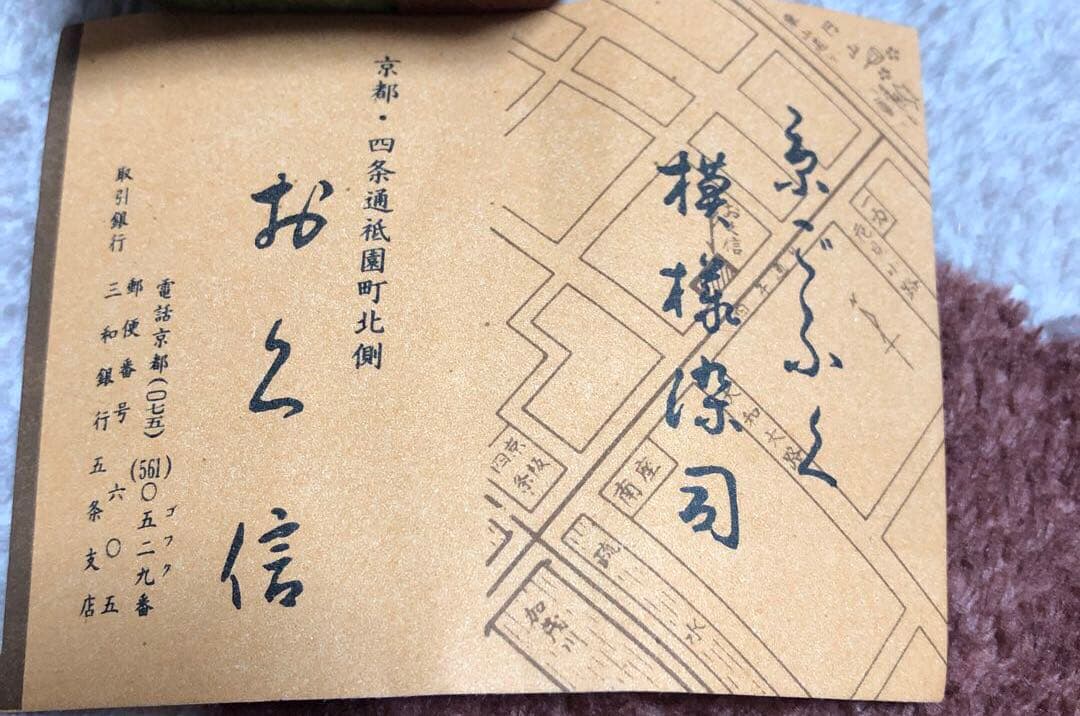 京ごふく
模様染司
京都・四条通祇園町北側
おく信
電話京都(〇七五)(561)〇五二九番
ゴフク
郵便番号六〇五
取引銀行 三和銀行五条支店
一力
花見小路
おく信
大和大路
南座
京阪
四条
疏水
加茂川